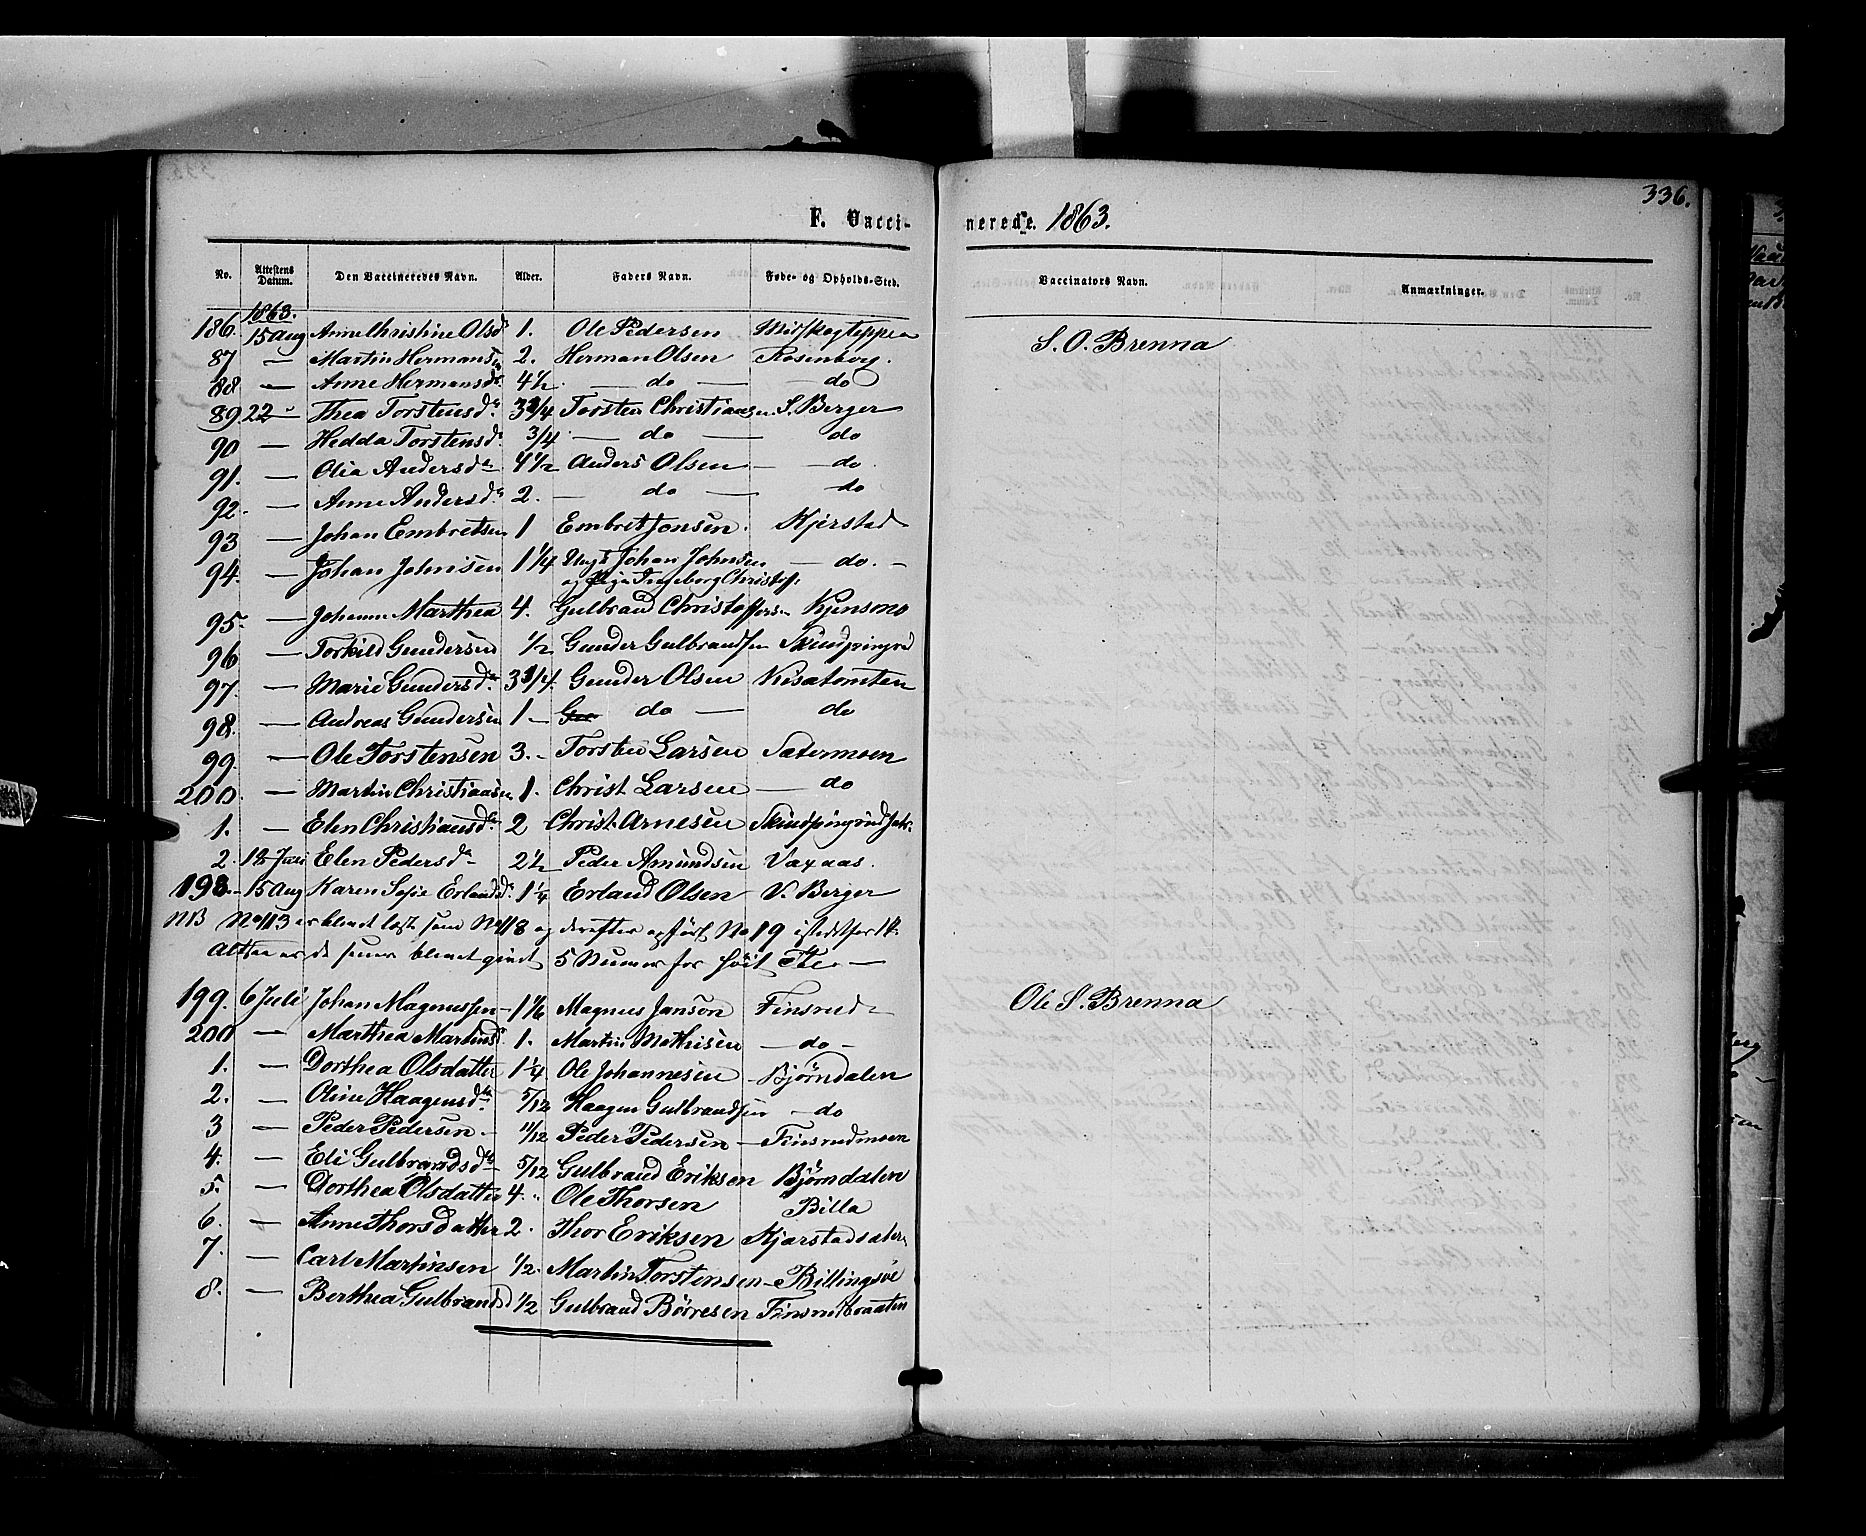 336.
F. Vacci- nerede. 1863.
No. Attestens Datum. Den Vaccineredes Navn. Alder. Faders Navn. Føde- og Opholds-Sted. Vaccinators Navn. Anmærkninger.
1863.
186. 15 Aug Anne Christine Olsd. 1. Ole Pedersen S. O. Brenna
87 — Martin Hermansen 2. Herman Olsen Rosenborg.
88 — Anne Hermansd. 4 1/2 — do — — do
89. 22 — Thea Torstensd. 3 3/4 Torsten Christiansen S. Berger
90 — Hedda Torstensd. 3/4 — do — do
91. — Olia Andersd. 4 1/2 Anders Olsen — do.
92. — Anne Andersd. 2. — do — do
93 — Johan Embretsen 1 Embret Jonsen. Kjerstad
94. — Johan Johnsen 1 1/4 Ungk Johan Johnsen — do. —
og Pige Ingeborg Christofs.
95. — Johanne Marthea 4. Gulbrand Christoffersen Kjensmo
96 — Torkild Gundersen 1/2 Gunder Gulbrandsen
97. — Marie Gundersd. Gunder Olsen Kisatomten
98. — Andreas Gundersen 1 — do — do
99 — Ole Torstensen 3. - Torsten Larsen Sætermoen
200. — Martin Christiansen 1. Christ Larsen — do
1. — Elen Christiansd. 2 Christ. Arnesen
2. 18 Juni Elen Pedersd. 2 1/2 Peder Amundsen Vaxaas.
198. - 15 Aug Karen Sofie Erlandsd. 1 1/4 Erland Olsen V. Berger
NB No 113 er blevet læst som No 118 og derefter opført No 19 istedetfor 14.
Altsaa er de senere blevet givet 5 Numer for høit
199. 6 Juli Johan Magnussen - 1 1/6 Magnus Janson Finsrud Ole S. Brenna
200 — Marthea Martinsd. 1. Martin Mathisen — do -
1. — Dorthea Olsdatter 1 1/4 Ole Johannesen Bjørndalen
2. — Oline Haagensd. 5/12 Haagen Gulbrandsen — do
3 — Peder Pedersen - 11/12 Peder Pedersen — Finsrudmoen
4. — Eli Gulbrandsd. 5/12 Gulbrand Eriksen Bjørndalen
5. — Dorthea Olsdatter 4. Ole Thorsen Billa
6. — Anne Thorsdatter 2. Thor Eriksen Kjærstadsæter
7. — Carl Martinsen 1/2. Martin Torstensen - Billingsøe
8. — Berthea Gulbrandsd 1/2 Gulbrand Børresen Finsrudbraaten